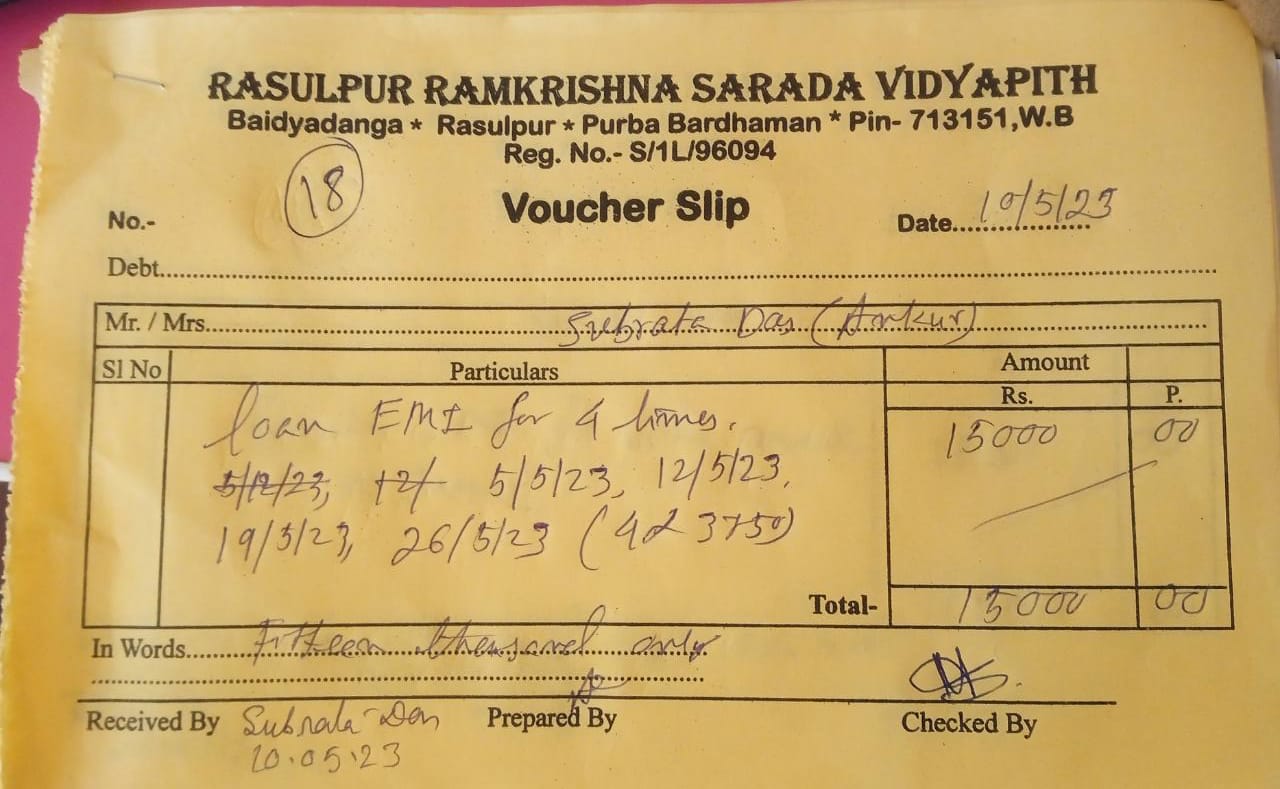 RASULPUR RAMKRISHNA SARADA VIDYAPITH
Baidyadanga * Rasulpur * Purba Bardhaman * Pin- 713151,W.B
Reg. No.- S/1L/96094
No.- 18 Voucher Slip Date....10/5/23
Debt.
Mr. / Mrs. Subrata Das (Ankur)
Sl No Particulars Amount
Rs. P.
loan EMI for 4 times. 15000 00
5/12/23, 12/ 5/5/23, 12/5/23,
19/5/23, 26/5/23 (4 3750)
Total- 15000 00
In Words Fifteen thousand only
Received By Subrata Das Prepared By Checked By
10.05.23